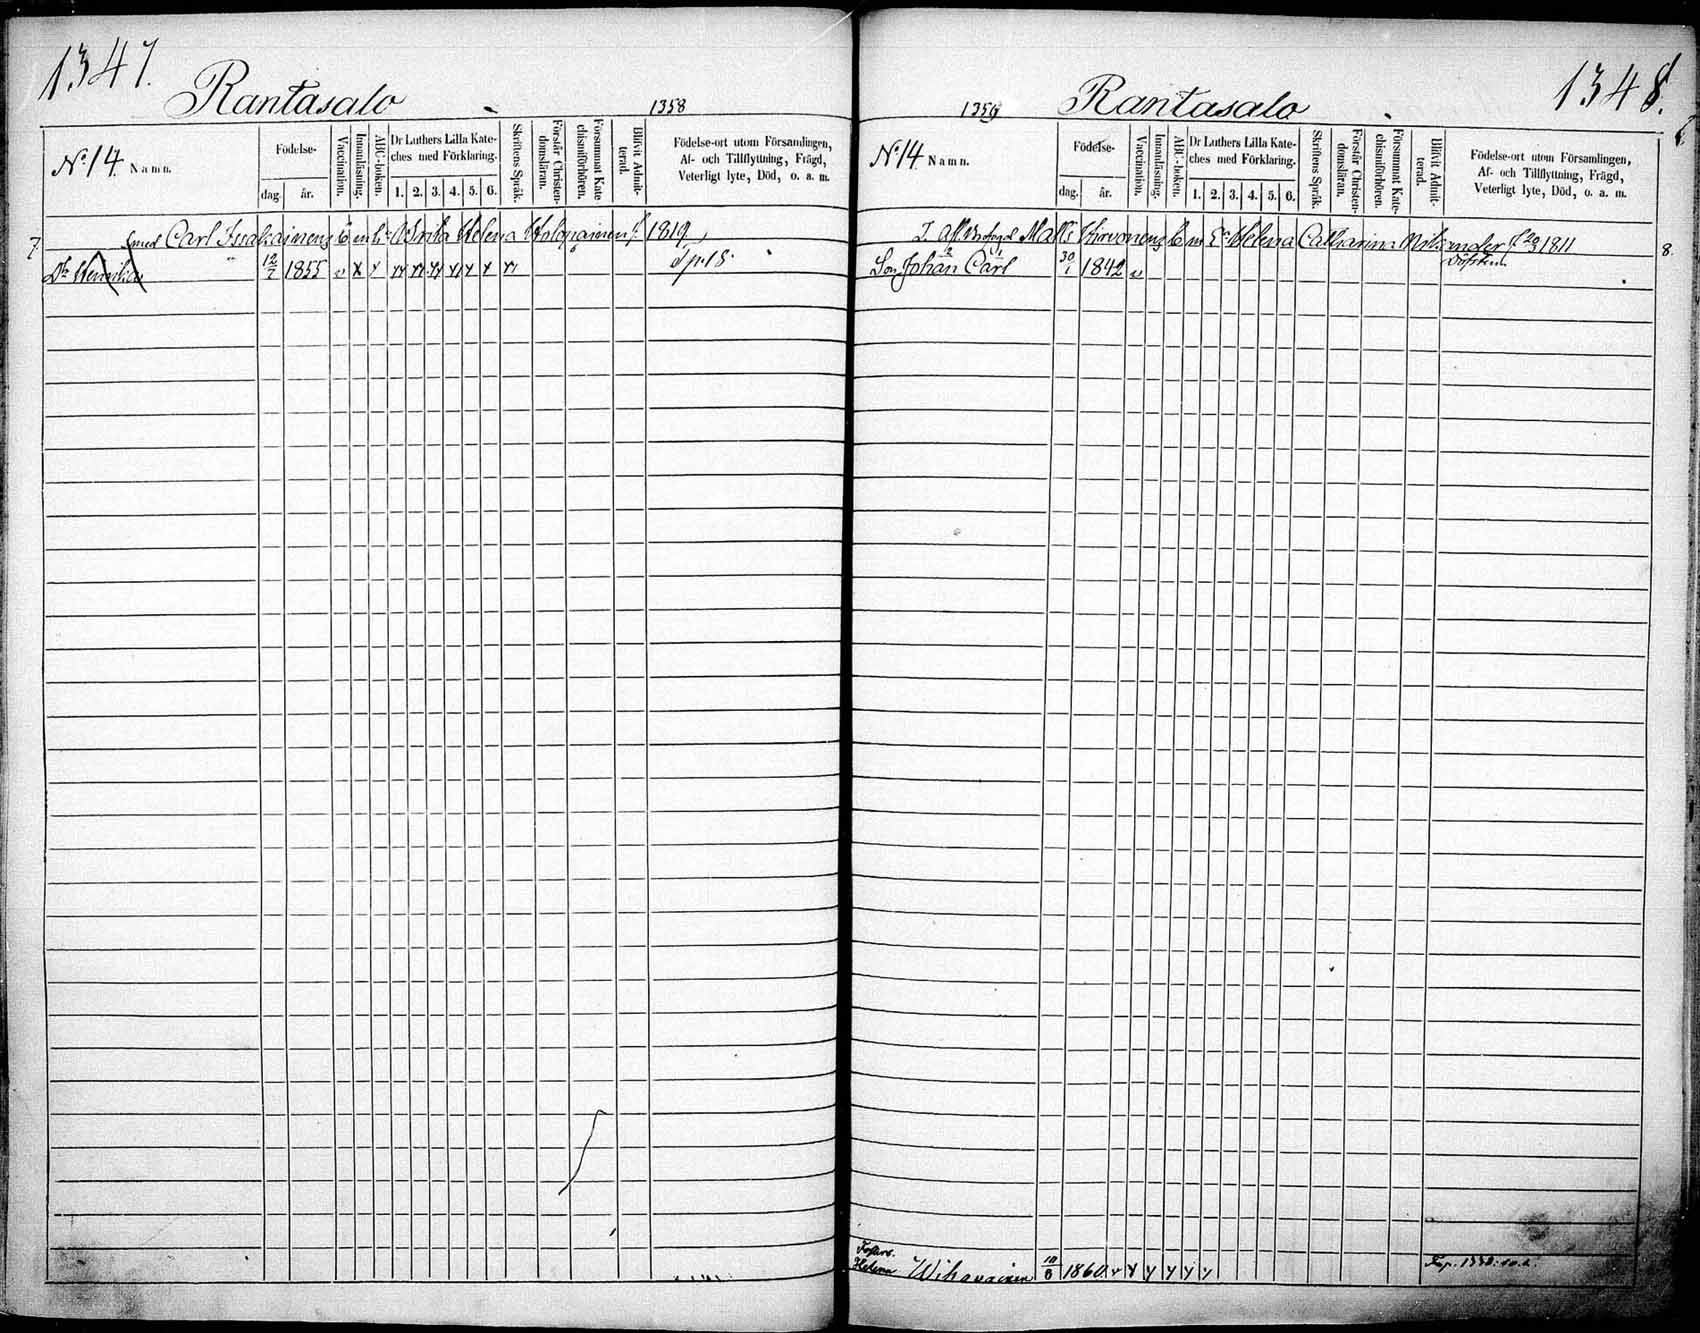 1347.
Rantasalo
1358
No 14 Namn.
Födelse-
dag.
år.
Vaccination.
Innanläsning.
ABC-boken.
Dr Luthers Lilla Kate-
ches med Förklaring.
1. 2. 3. 4. 5. 6.
Skriftens Språk.
Förstår Christen-
domsläran.
Försummat Kate-
chismiförhören.
Blifvit Admit-
terad.
Födelse-ort utom Församlingen,
Af- och Tillflyttning, Frägd,
Veterligt lyte, Död, o. a. m.
7. Smed Carl Helena f. 1819
Dr 12/7 1855
1359
Rantasalo
1348.
No 14 Namn.
Födelse-
dag.
år.
Vaccination.
Innanläsning.
ABC-boken.
Dr Luthers Lilla Kate-
ches med Förklaring.
1. 2. 3. 4. 5. 6.
Skriftens Språk.
Förstår Christen-
domsläran.
Försummat Kate-
chismiförhören.
Blifvit Admit-
terad.
Födelse-ort utom Församlingen,
Af- och Tillflyttning, Frägd,
Veterligt lyte, Död, o. a. m.
Matts Hirvonens Helena Catharina 1811 8.
Son Johan Carl 30/1 1842 v
Helena Wihavainen 10/6 1860